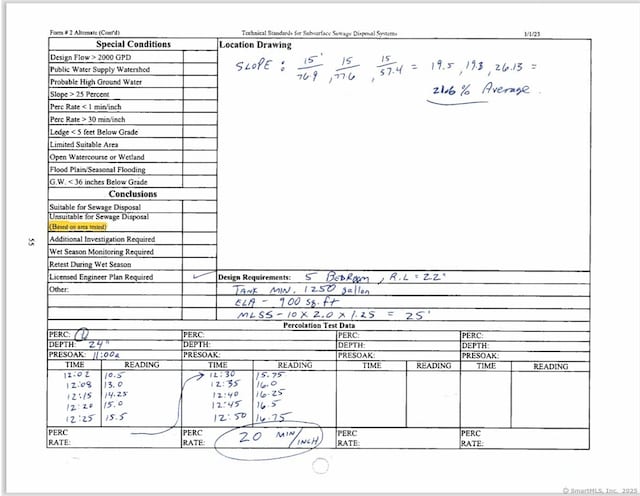 Form # 2 Alternate (Cont'd) Technical Standards for Subsurface Sewage Disposal Systems 1/1/23
Special Conditions
Design Flow > 2000 GPD
Public Water Supply Watershed
Probable High Ground Water
Slope > 25 Percent
Perc Rate < 1 min/inch
Perc Rate > 30 min/inch
Ledge < 5 feet Below Grade
Limited Suitable Area
Open Watercourse or Wetland
Flood Plain/Seasonal Flooding
G.W. < 36 inches Below Grade
Conclusions
Suitable for Sewage Disposal
Unsuitable for Sewage Disposal
(Based on area tested)
Additional Investigation Required
Wet Season Monitoring Required
Retest During Wet Season
Licensed Engineer Plan Required ✓
Other:
Location Drawing
SLOPE : 15'/76.9 , 15/77.6 , 15/57.4 = 19.5 , 19.3 , 26.13 =
21.6 % Average.
Design Requirements: 5 BEDROOM , R.L = 22'
TANK MIN. 1250 gallon
ELA - 900 sq. ft
MLSS - 10 x 2.0 x 1.25 = 25'
55
Percolation Test Data
PERC: 1 PERC: PERC: PERC:
DEPTH: 24" DEPTH: DEPTH: DEPTH:
PRESOAK: 11:00a PRESOAK: PRESOAK: PRESOAK:
TIME READING TIME READING TIME READING TIME READING
12:02 10.5 12:30 15.75
12:08 13.0 12:35 16.0
12:15 14.25 12:40 16.25
12:20 15.0 12:45 16.5
12:25 15.5 12:50 16.75
PERC RATE: PERC RATE: 20 MIN/INCH PERC RATE: PERC RATE:
© SmartMLS, Inc. 2025